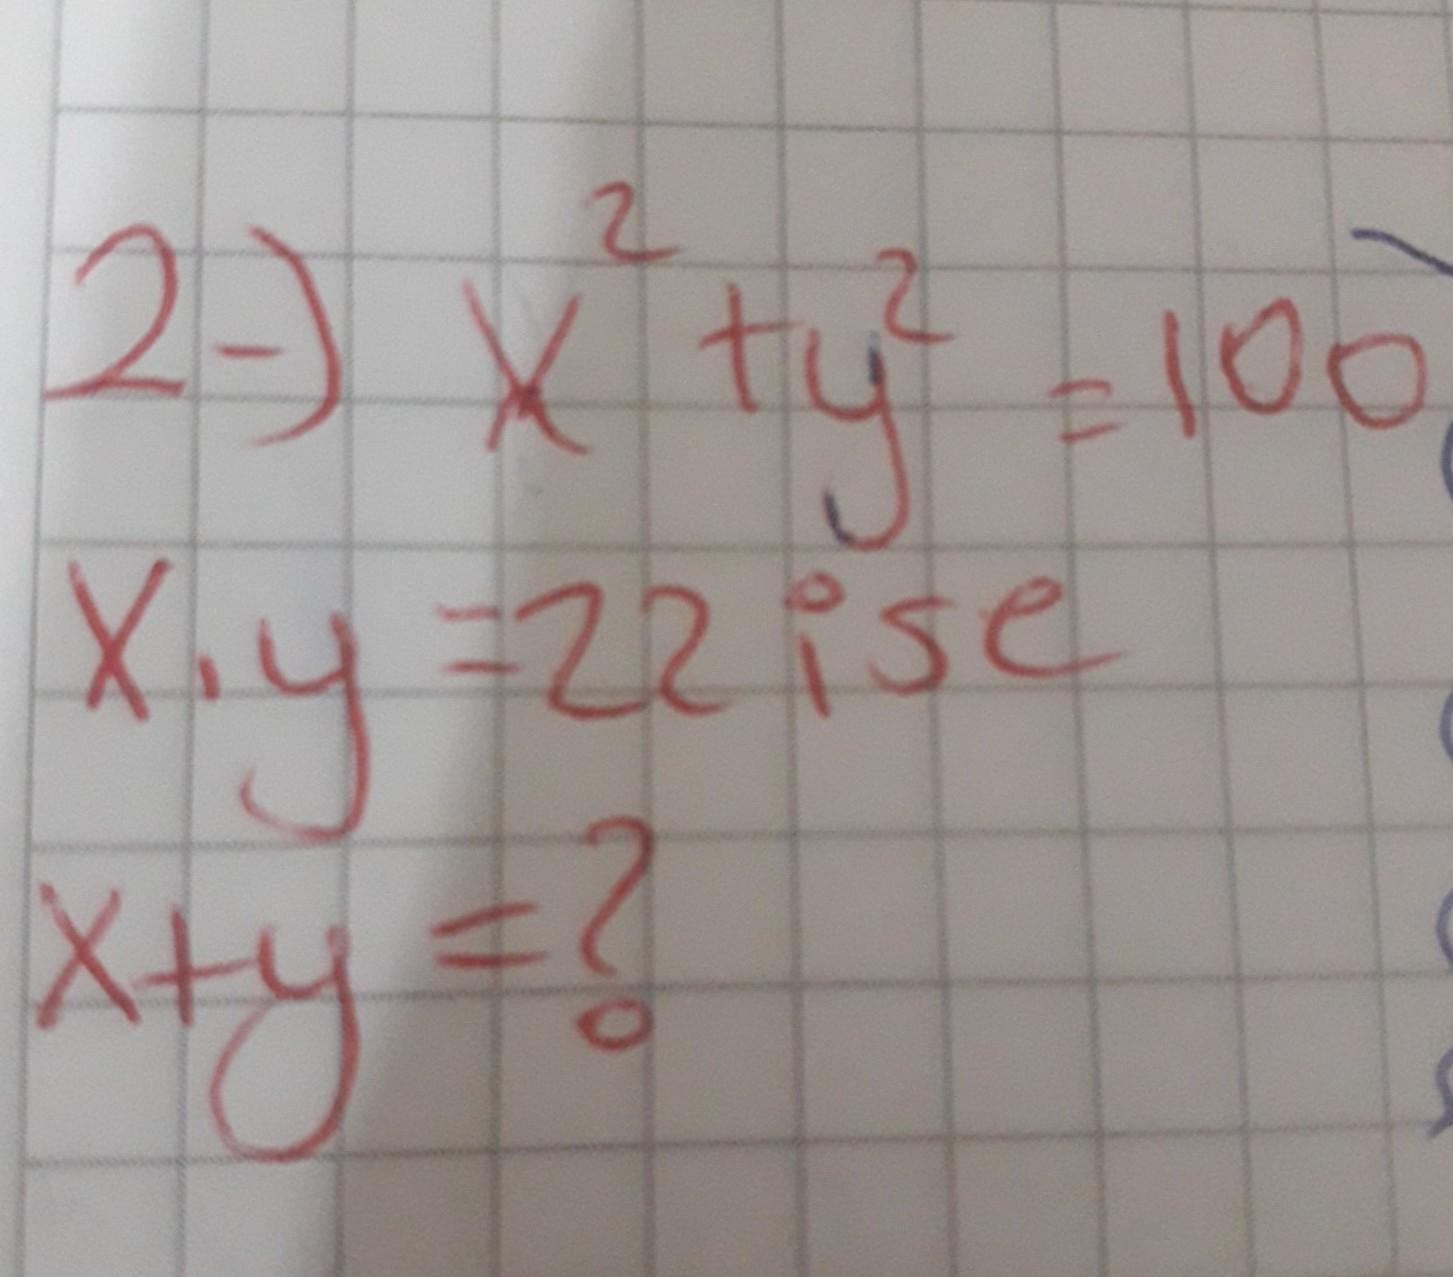 2-) x² + y² = 100
x.y = 22 ise
x+y = ?